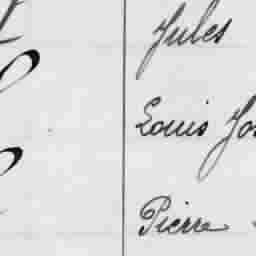 Jules
Louis
Pierre